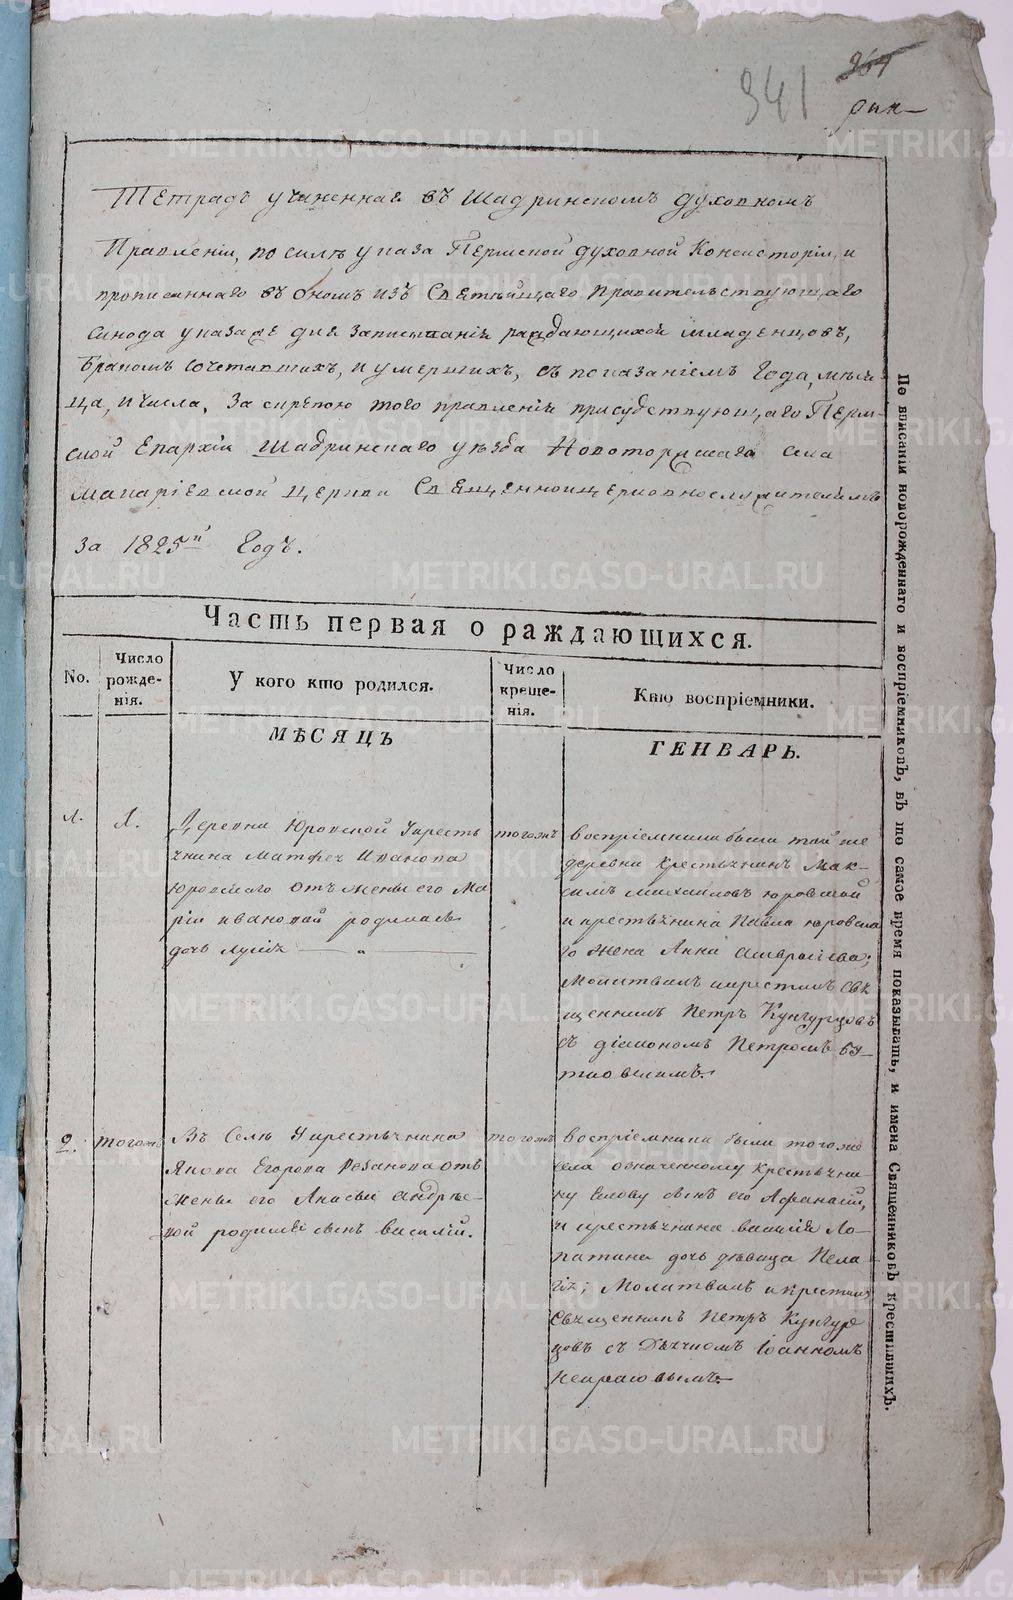 341
264
Тетрадь учиненная въ Шадринскомъ духовномъ
Правленіи, по силѣ указа Пермской духовной Консисторіи, и
прописаннаго въ ономъ изъ Святѣйщаго Правительствующаго
Синода указа для записыванія раждающихся младенцовъ,
бракомъ сочетавшихъ, и умершихъ, съ показаніемъ Года, мѣся-
ца, и числа, за скрепою того правленія присудствующаго Перм-
ской Епархіи Шадринскаго уѣзда Новоторжскаго села
Макаріевской церкви Священноицерковнослужителямъ
за 1825й Годъ.
Часть первая о раждающихся.
No.
Число рожде-нія.
У кого кто родился.
Число креще-нія.
Кто воспріемники.
МѢСЯЦЪ
ГЕНВАРЬ.
1.
1.
Деревни Юровской Укресть
янина Матфея Иванова
Юровскаго отъ жены его Ма
ріи ивановой родилась
дочь
тогожъ
воспріемники были тойже
деревни крестьянинъ Мак-
симъ михаиловъ юровской
и крестьянина Павла юровска
го жена Анна
Молитвилъ икрестилъ свя
щенникъ Петръ Кунгурцовъ
съ діакономъ Петромъ Бу-
2.
тогожъ
Въ Селѣ Укрестьянина
Якова Егорова Резанова отъ
жены его Андрѣе-
вой родился сынъ василій.
тогожъ
воспріемники были тогоже
села означенному крестьяни-
ну сынъ его Афанасій,
и крестьянина василія Ло-
патина дочь дѣвица Пела
гія; Молитвилъ и крестилъ
Священникъ Петръ Кунгур
цовъ съ Дьячкомъ Іоанномъ
Некрасовымъ.
По вписаніи новорожденнаго и воспріемниковъ, въ то самое время показывать, и имена Священниковъ крестившихъ.
METRIKI.GASO-URAL.RU